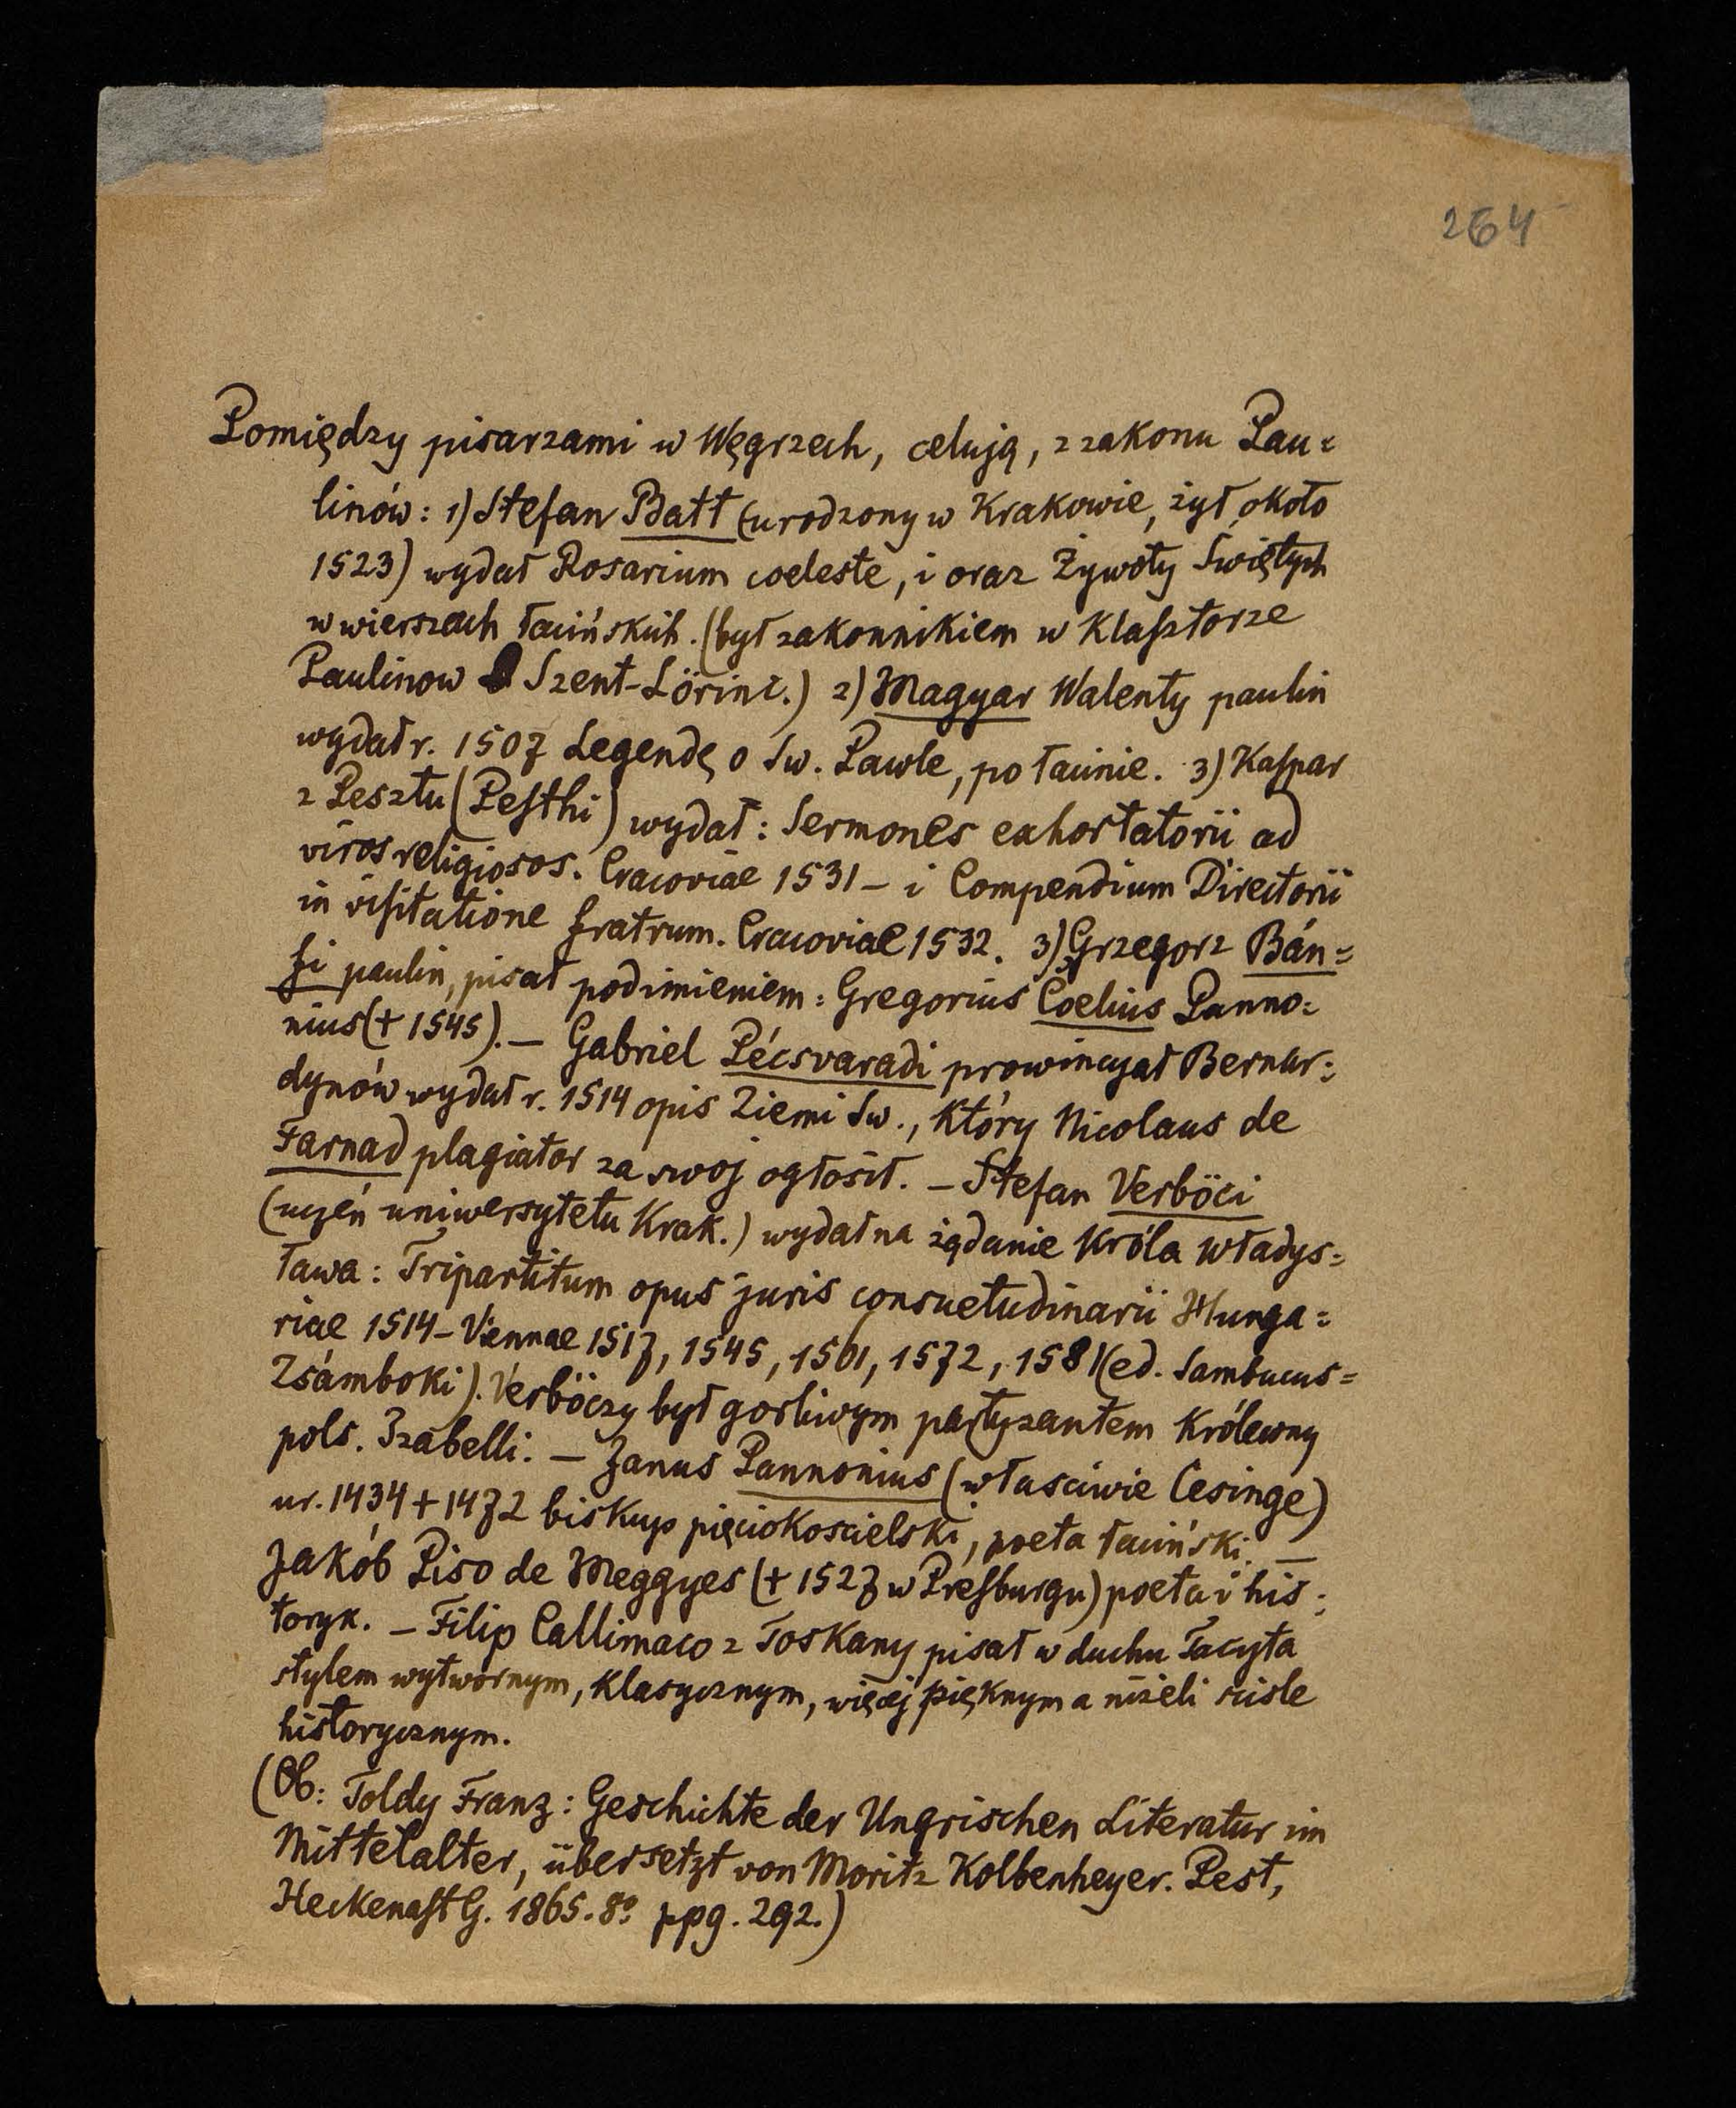 264
Pomiędzy pisarzami w Węgrzech, celują, z zakonu Pau=
linów: 1) Stefan Batt (urodzony w Krakowie, żył około
1523) wydał Rosarium coeleste, i oraz Żywoty Świętych
w wierszach łacińskich. (był zakonnikiem w Klasztorze
Paulinow Szent-Lörinc.) 2) Magyar Walenty paulin
wydał r. 1507 Legendę o Św. Pawle, po łacinie. 3) Kaspar
z Pesztu (Pesthi) wydał: Sermones exhortatorii ad
viros religiosos. Cracoviae 1531 – i Compendium Directorii
in visitatione fratrum. Cracoviae 1532. 3) Grzegorz Bán=
fi paulin, pisał pod imieniem: Gregorius Coelius Panno=
nius (+ 1545). – Gabriel Pécsvaradi prowincyał Bernar=
dynów wydał r. 1514 opis Ziemi Św., który Nicolaus de
Farnad plagiator za swoj ogłosił. – Stefan Verböci
(uczeń uniwersytetu Krak.) wydał na żądanie Króla Władys=
ława: Tripartitum opus juris consuetudinarii Hunga=
riae 1514 – Viennae 1517, 1545, 1561, 1572, 1581 (ed. Sambucus=
Zsámboki). Verböczy był gorliwym partyzantem Królewny
pols. Izabelli. – Janus Pannonius (własciwie Cesinge)
ur. 1434 + 1472 biskup pięciokoscielski, poeta łaciński. –
Jakób Piso de Meggyes (+ 1527 w Presburgu) poeta i his=
toryk. – Filip Callimaco z Toskany pisał w duchu Tacyta
stylem wytwornym, klasycznym, więcej pięknym a niżeli scisle
historycznym.
(Ob: Toldy Franz: Geschichte der Ungrischen Literatur im
Mittelalter, übersetzt von Moritz Kolbenheyer. Pest,
Heckenast G. 1865. 8º ppg. 292.)